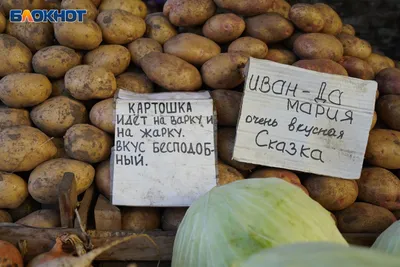 БЛОКНОТ
КАРТОШКА
ИДЕТ НА ВАРКУ, И
НА ЖАРКУ.
ВКУС БЕСПОДОБ-
НЫЙ.
ИВАН-ДА
МАРИЯ
очень вкусная
Сказка